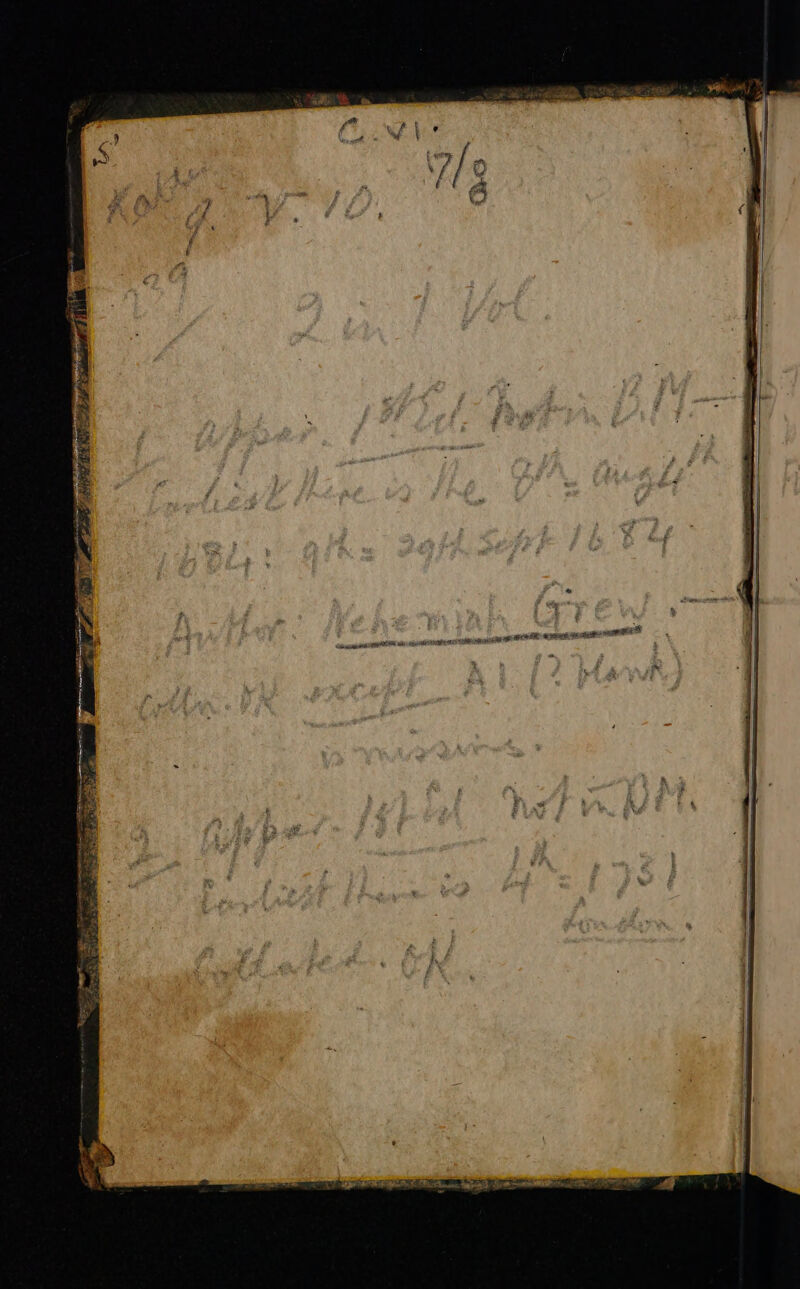 C.VI.
7/9
V. 10.
29
2 in 1 Vol.
1. Appar. 1st Ed. Not in B.M.—
Earliest there is the 8th = Aug 4th
1684: 9th = 29th Sept 1684
Author: Nehemiah Grew.—
Colln. OK except A1 (? blank)
is missing.
2. Appar. 1st Ed not in BM.
Earliest there is 4th = 1731
London.
Collated. OK.